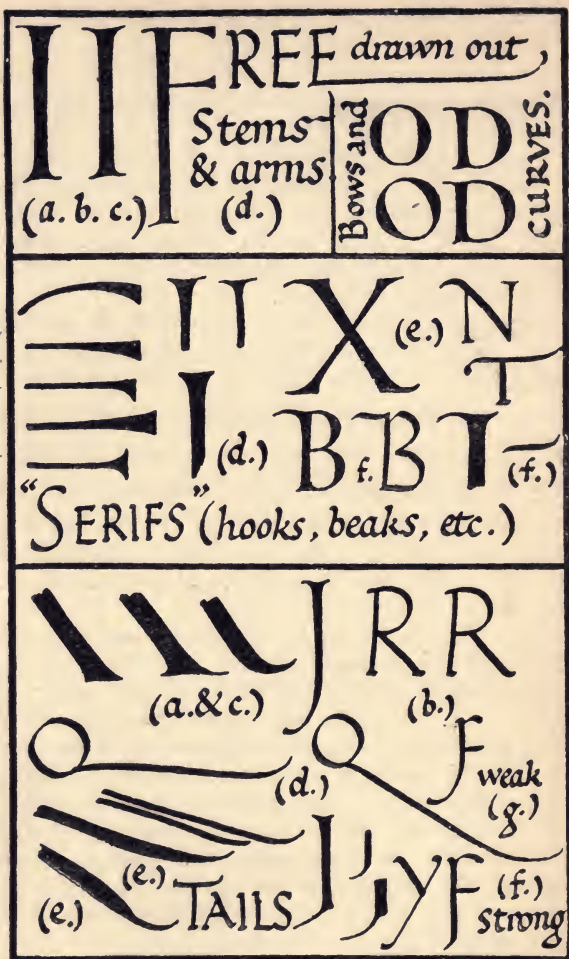 IIFREE drawn out,
Stems
& arms
(a. b. c.) (d.)
Bows and
O D
O D
CURVES.
X (e.) N
T
(d.) B f. B I (f.)
"SERIFS" (hooks, beaks, etc.)
J R R
(a. & c.) (b.)
Q (d.) Q F weak
(g.)
(e.) (e.) TAILS J J J y F (f.)
strong